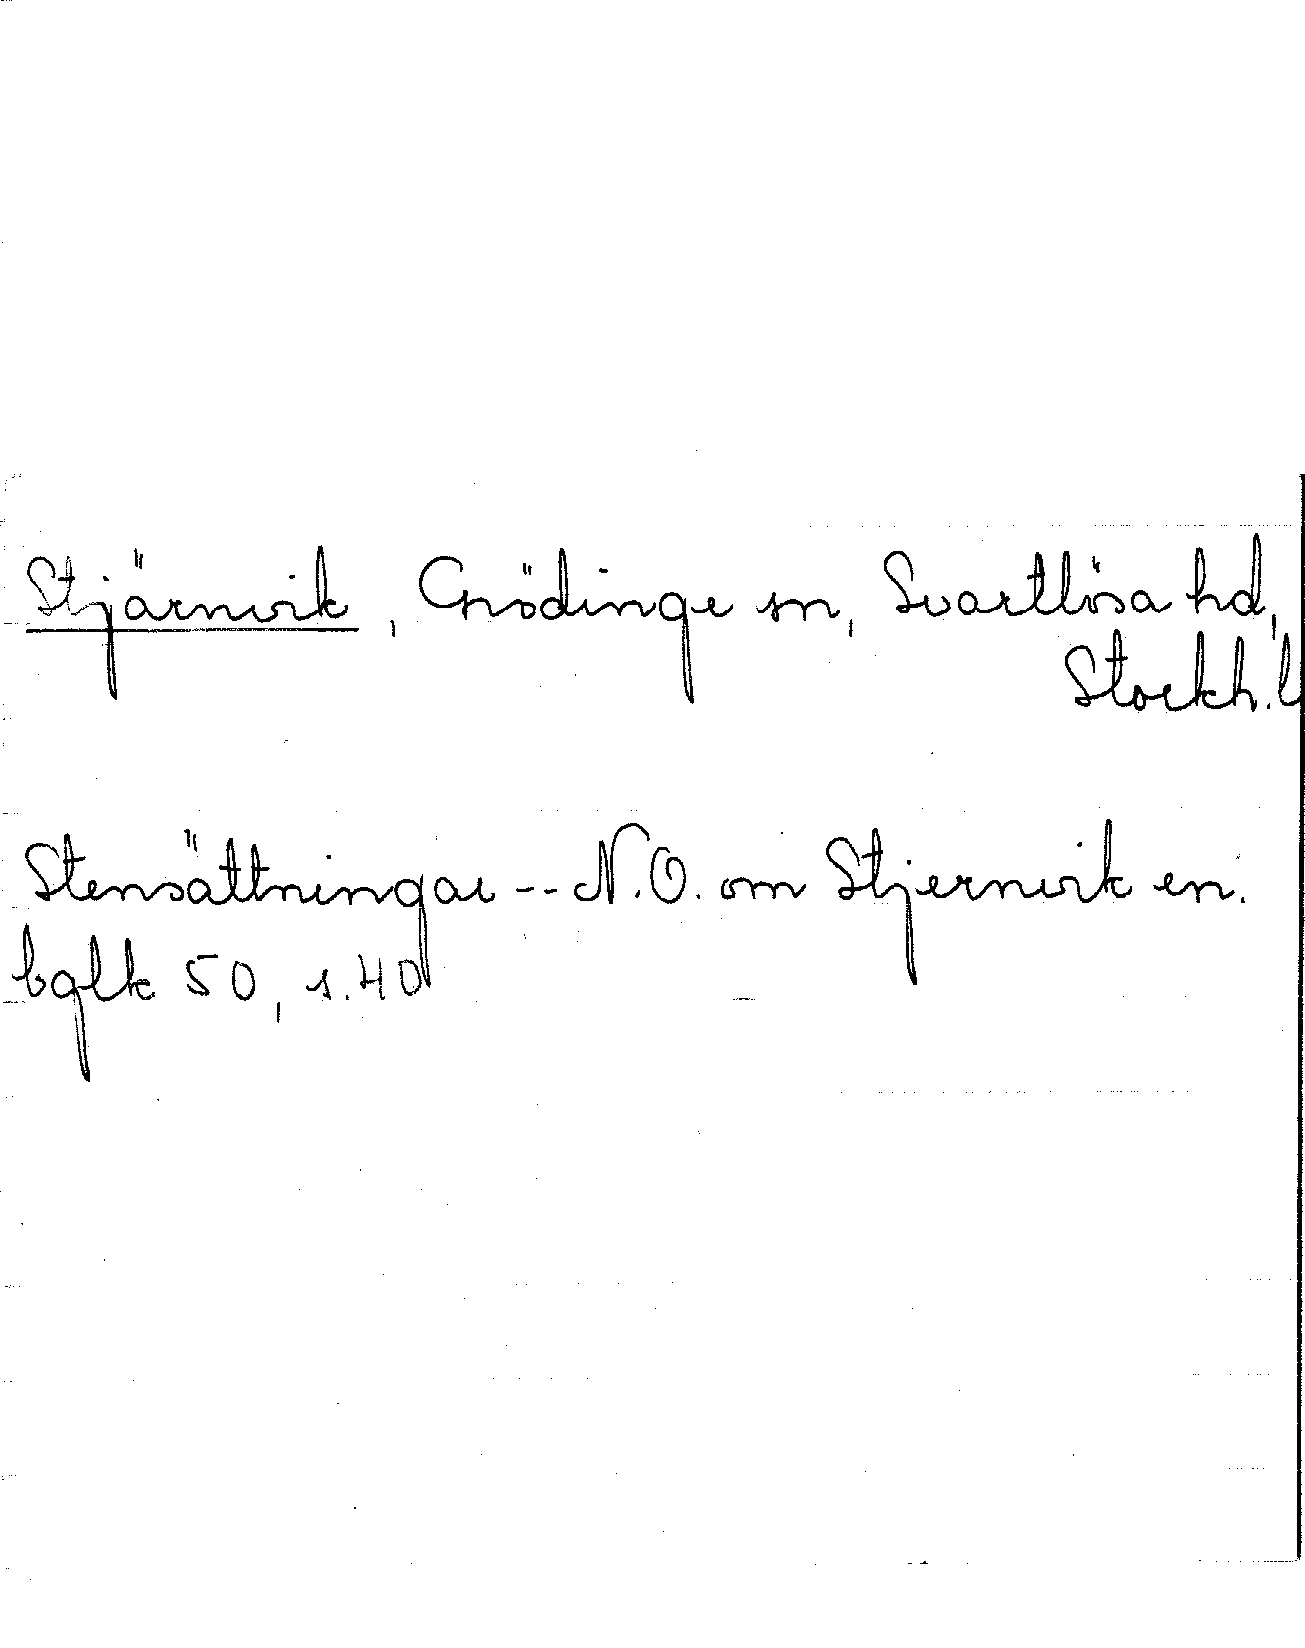 Stjärnvik, Grödinge sn, Svartlösa hd,
Stockh. l
Stensättningar -- N.O. om Stjernvik en.
bglk 50, s. 40